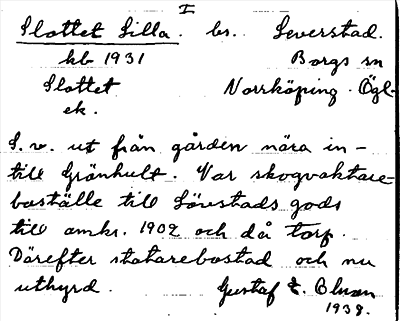 I
Slottet Lilla. bs. Leverstad.
kb 1931 Borgs sn
Slottet Norrköping. Ögl.
ek.
S. v. ut från gården nära in-
till Grönhult. Var skogvaktare-
boställe till Lövstads gods
till omkr. 1902 och då torp.
Därefter statarebostad och nu
uthyrd. Gustaf E.
1938.